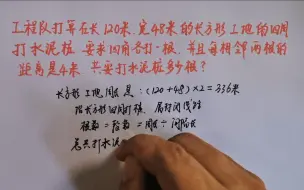 工程队打算在长120米,宽48米的长方形工地的四周
打水泥桩,要求四角各打一根,并且每相邻两根的
距离是4米,共要打水泥桩多少根?
长方形工地周长是:(120+48)×2=336米
沿长方形四周打桩,属封闭线路
根数=段数=周长÷间隔长
总共打水泥